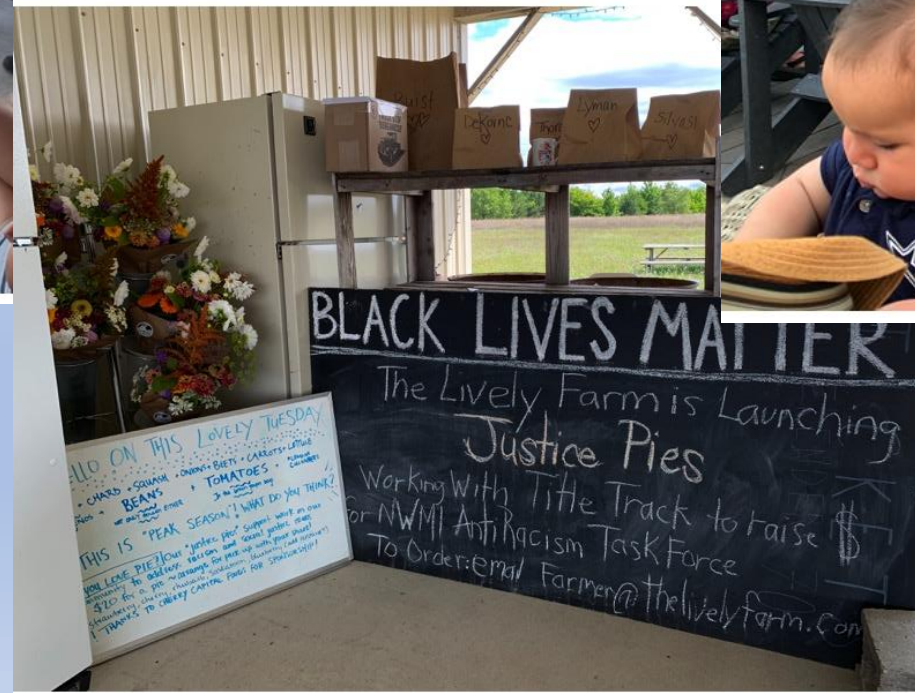 Buist
DeKorne
Thom
Lyman
Silvast
BLACK LIVES MATTER
The Lively Farm is Launching
Justice Pies
Working With Title Track to raise $
for NWMI AntiRacism Task Force
To Order: email Farmer@thelivelyfarm.com
LLO ON THIS LOVELY TUESDAY
• CHARD • SQUASH • ONIONS • BEETS • CARROTS • LETTUCE
BEANS + TOMATOES +
THIS IS "PEAK SEASON"! WHAT DO YOU THINK?
YOU LOVE PIE? Our "justice pies" support work in our
community to address racism and social justice
$20 for a pie ~ arrange for pick up with your share!
strawberry, cherry, rhubarb, saskatoon, blueberry
THANKS TO CHERRY CAPITAL FOODS FOR SPONSORSHIP!